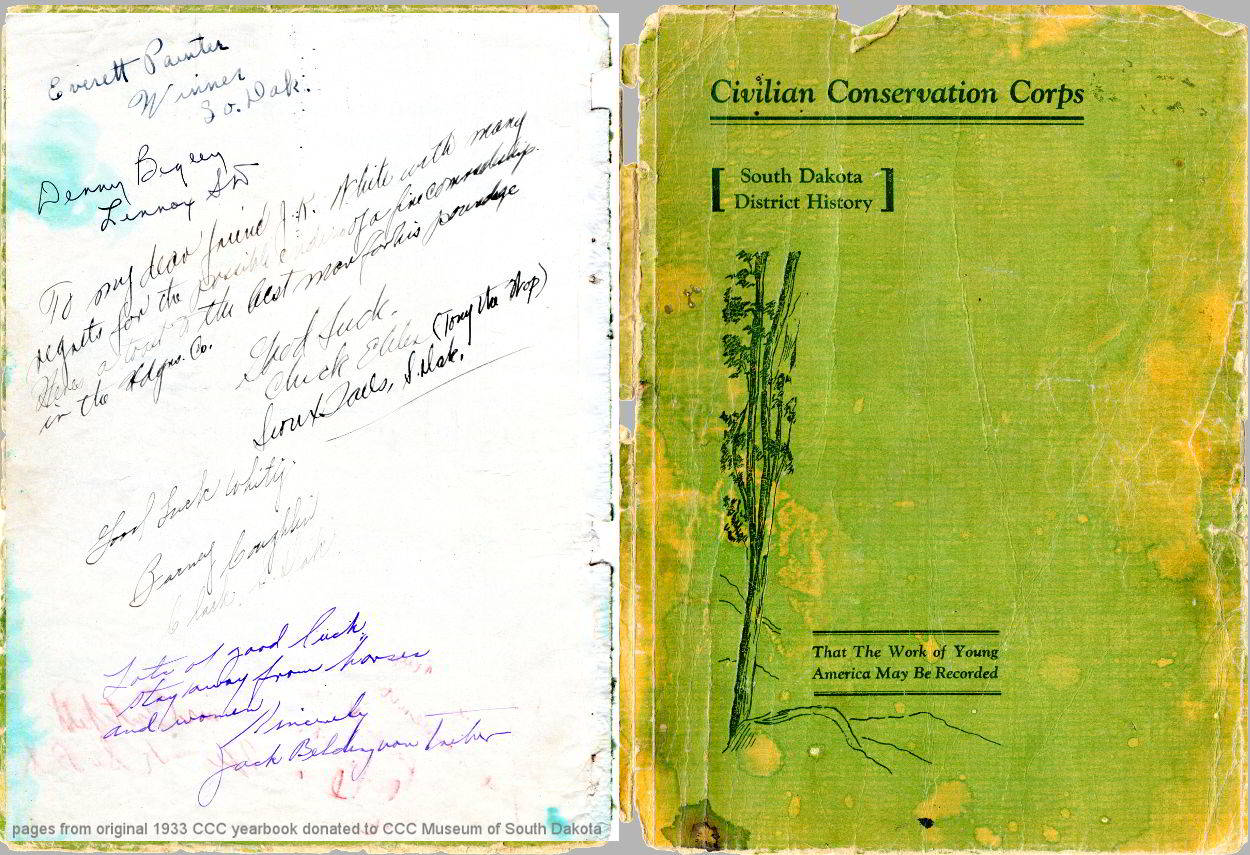 Everett Painter
Winner
So. Dak.
Denny Begeey
Lennox SD
To my dear friend J.K. White with many
regrets for the possible of a fine comradeship.
Heres a toast to the best man for his poundage
in the Hdqrs. Co.
Good Luck.
Chuck (Tony the Wop)
Sioux Falls, S. Dak.
Good Luck Whity.
Barney Coughlin
Clark, S. Dak.
Lots of good luck.
stay away from horses
and women
Sincerely
Jack
pages from original 1933 CCC yearbook donated to CCC Museum of South Dakota
Civilian Conservation Corps
[ South Dakota
District History ]
That The Work of Young
America May Be Recorded